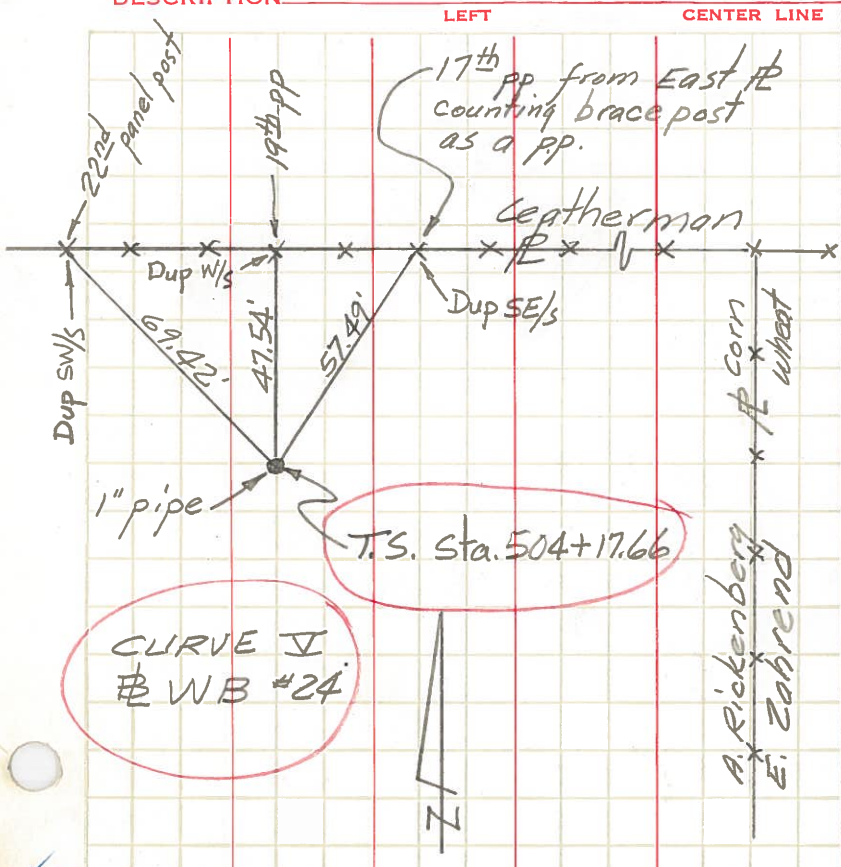 LEFT
CENTER LINE
22nd panel post
19th pp
17th pp. from East ⅊
counting brace post
as a p.p.
Leatherman
⅊
Dup W/s
Dup SE/s
Dup SW/s
69.42'
47.54'
57.49'
1" pipe
T.S. Sta. 504+17.66
CURVE V
WB #24
⅊ Corn
Wheat
A. Rickenberg
E. Zahrend
N